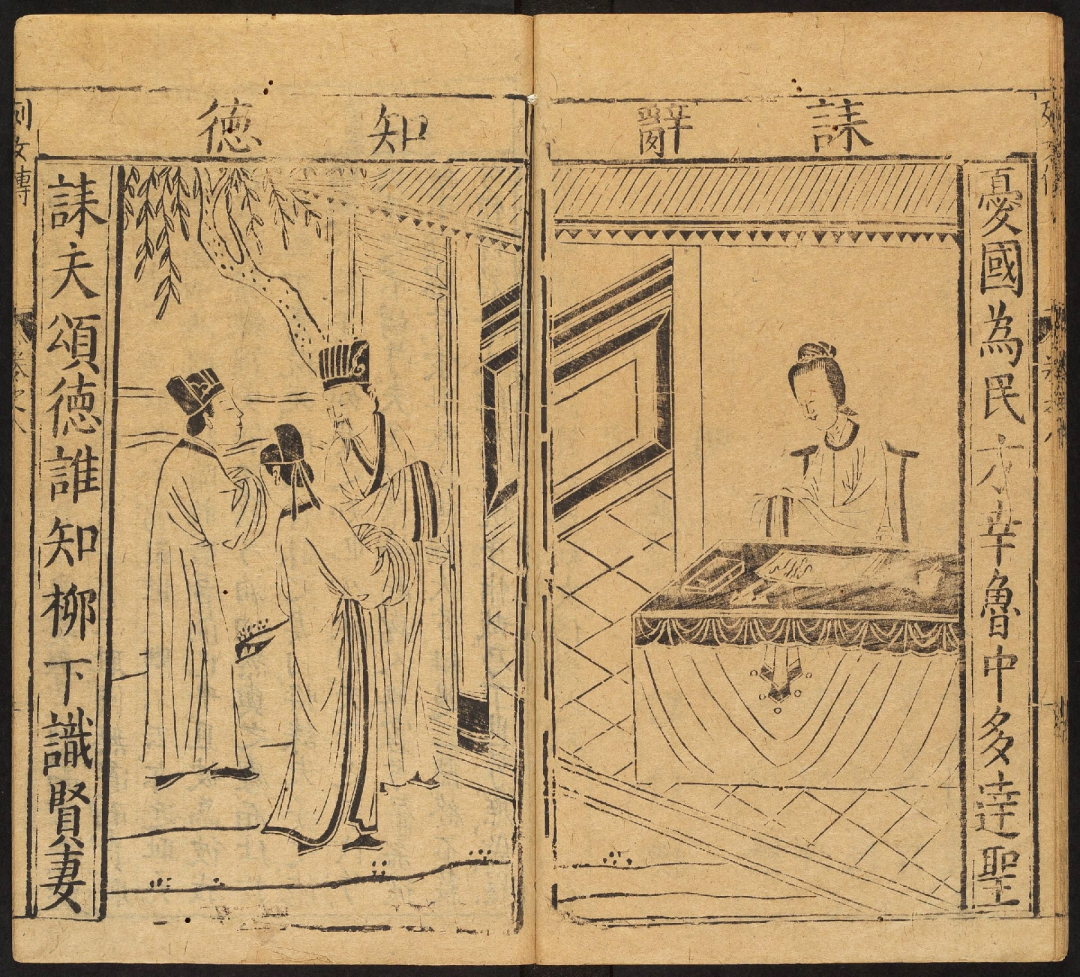 誄辭
知徳
憂國為民才幸魯中多逹聖
誄夫頌徳誰知柳下識賢妻
列女傳